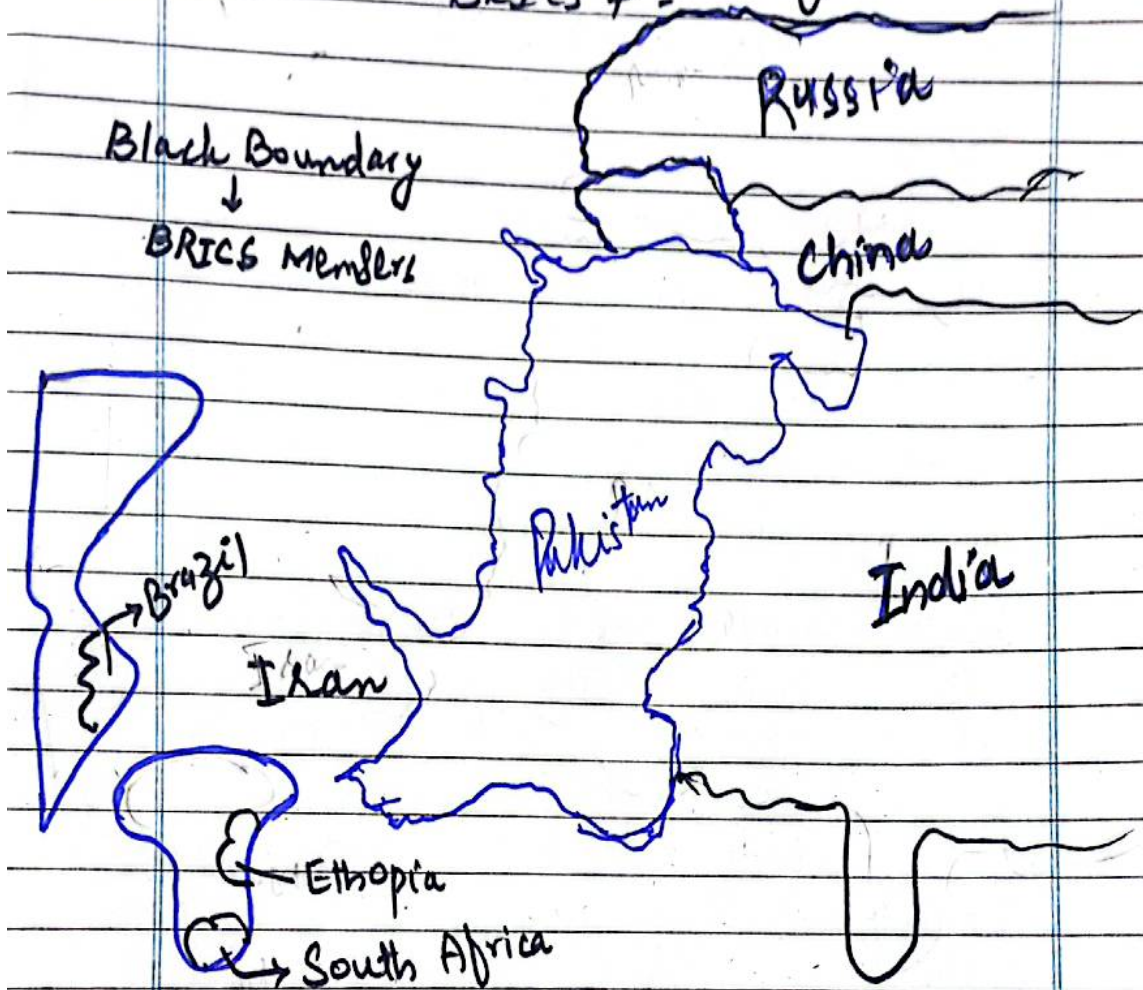 Russia
Black Boundary
↓
BRICS Members
China
Pakistan
Brazil
India
Iran
Ethopia
South Africa